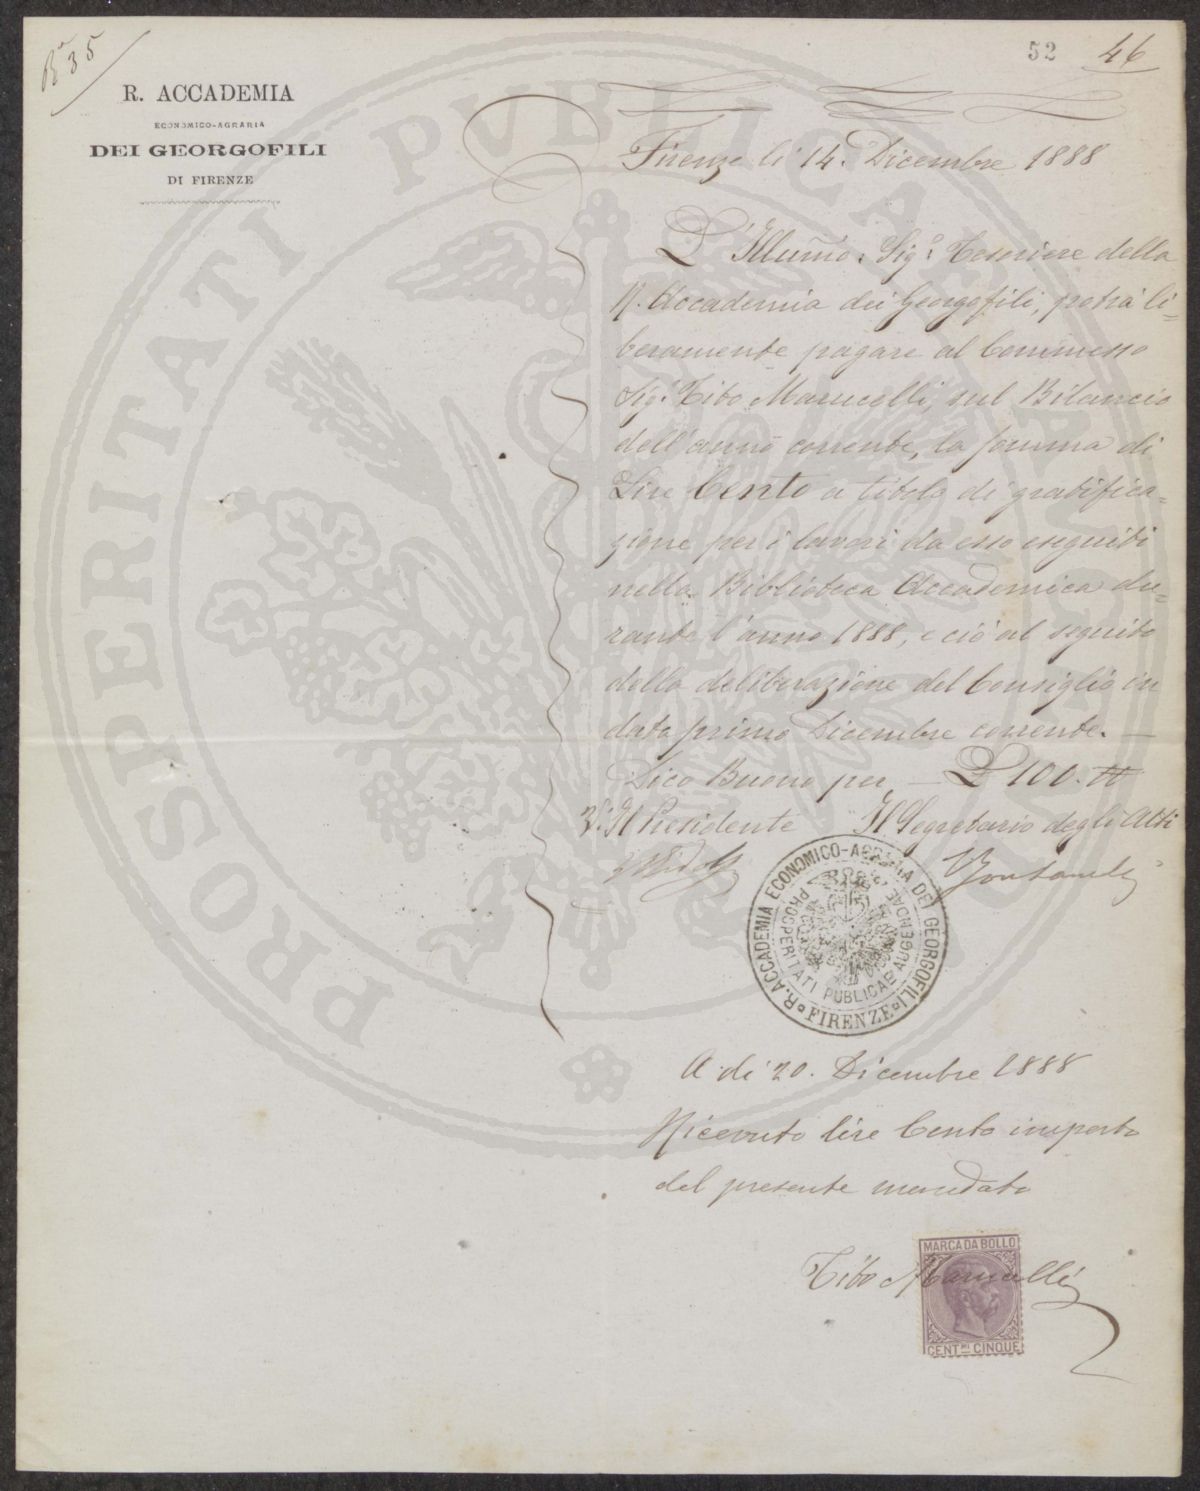 Bª 35
52
46
R. ACCADEMIA
ECONOMICO-AGRARIA
DEI GEORGOFILI
DI FIRENZE
Firenze li 14. Dicembre 1888
L'Illumo: Sigr. Tesoriere della
R. Accademia dei Georgofili, potrà li=
beramente pagare al Commesso
Sigr. Tito Marucelli, sul Bilancio
dell'anno corrente, la somma di
Lire Cento a titolo di gratifica=
zione per i lavori da esso eseguiti
nella Biblioteca Accademica du=
rante l'anno 1888, e ciò al seguito
della deliberazione del Consiglio in
data primo Dicembre corrente. —
Dico Buono per — L 100. "
V.° Il Presidente Il Segretario degli Atti
R. ACCADEMIA ECONOMICO-AGRARIA DEI GEORGOFILI
PROSPERITATI PUBLICAE AUGENDAE
FIRENZE
A dì 20. Dicembre 1888
Ricevuto lire Cento importo
del presente mandato
Tito Marucelli
MARCA DA BOLLO
CENT.MI CINQUE
PROSPERITATI PVBLICAE